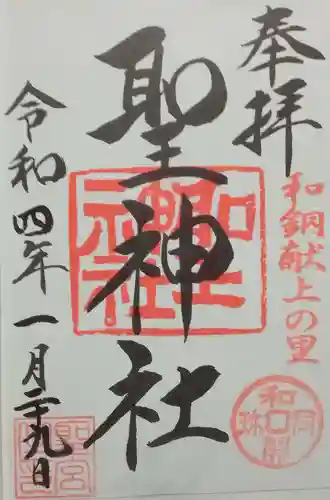 奉拝
和銅献上の里
聖神社
令和四年一月二十九日
聖神社
和同開珎